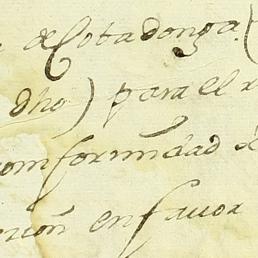 de Cobadonga (
dho) para el
comformidad
en favor